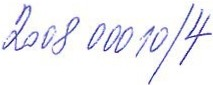 2008 00010/4